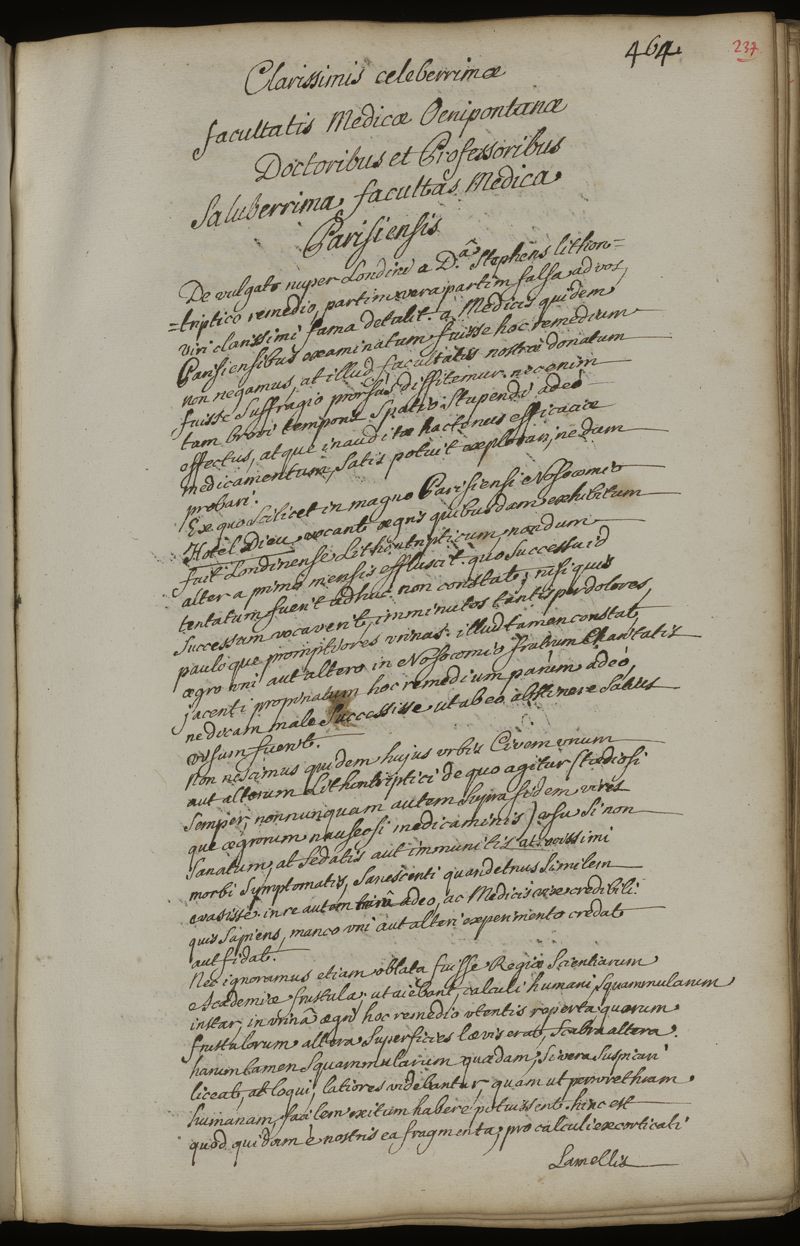 464
237
Clarissimis celeberrimæ
facultatis Medicæ Oenipontanæ
Doctoribus et Professoribus
Saluberrima facultas Medica
Parisiensis
De vulgato nuper Londini a D.â Stephens lithon=
=triptico remedio, partim vera partim falsa ad vos,
viri clarissimi fama detulit. a Medicis quidem
Parisiensibus examinatum fuisse hoc remedium
non negamus, at illud facultatis nostræ donatum
fuisse suffragio prorsùs diffitemur. nec enim
tam brevi temporis spatio stupendi adeò
effectus, atque inauditæ hactenus efficaciæ
medicamentum, satis potuit explorari, nedum
probari.
Ex quo scilicet in magno Parisiensi Nosocomio
Hotel Dieu vocant ægris quibusdam exhibitum
fuit Londinense Lithontripticum, nondum
alter a primo mensis effluxit. quo successu id
tentatum fuerit adhuc non constat, nisi quis
successum vocaverit, imminutos tantisper dolores,
pauloque promptiores urinas. illud tamen constat,
ægro uni aut altero in Nosocomio fratrum Charitatis
jacenti propinatum hoc remedium parùm adeò,
ne dicam male successisse ut ab eo abstinere satius
visum fuerit.
Non nescimus quidem hujus urbis Civem unum
aut alterum Lithontriptici de quo agitur (tædiosi
semper, nonnunquam autem supra fidem vires
que ægrorum nauseosi medicaminis) usu si non
sanatum, at sedatis aut imminutis atrocissimi
morbi symptomatis, sanescenti quandetnus similem
evasisse. in re autem adeo, ac Medicis vix credibili
quis sapiens, manco uni aut alteri experimento credat
aut fidat.
Nec ignoramus etiam oblata fuisse Regiæ Scientiarum
Academiæ frustula, ut aiebant, calculi humani, squammularum
instar, in urinâ ægri hoc remedio utentis reperta quorum
frustulorum altera superficies lævis erat, scabra altera.
harum tamen squammularum quædam, si vera suspicari
liceat, at loqui, latiores videbantur, quam ut per urethram
humanam, facilem exitum habere potuissent. hinc est
quod quidam è nostris ea fragmenta, pro calculi excorticati
Lamellis